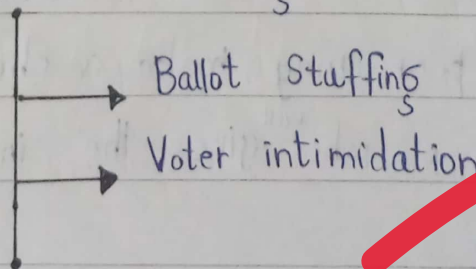 Ballot Stuffing
Voter intimidation